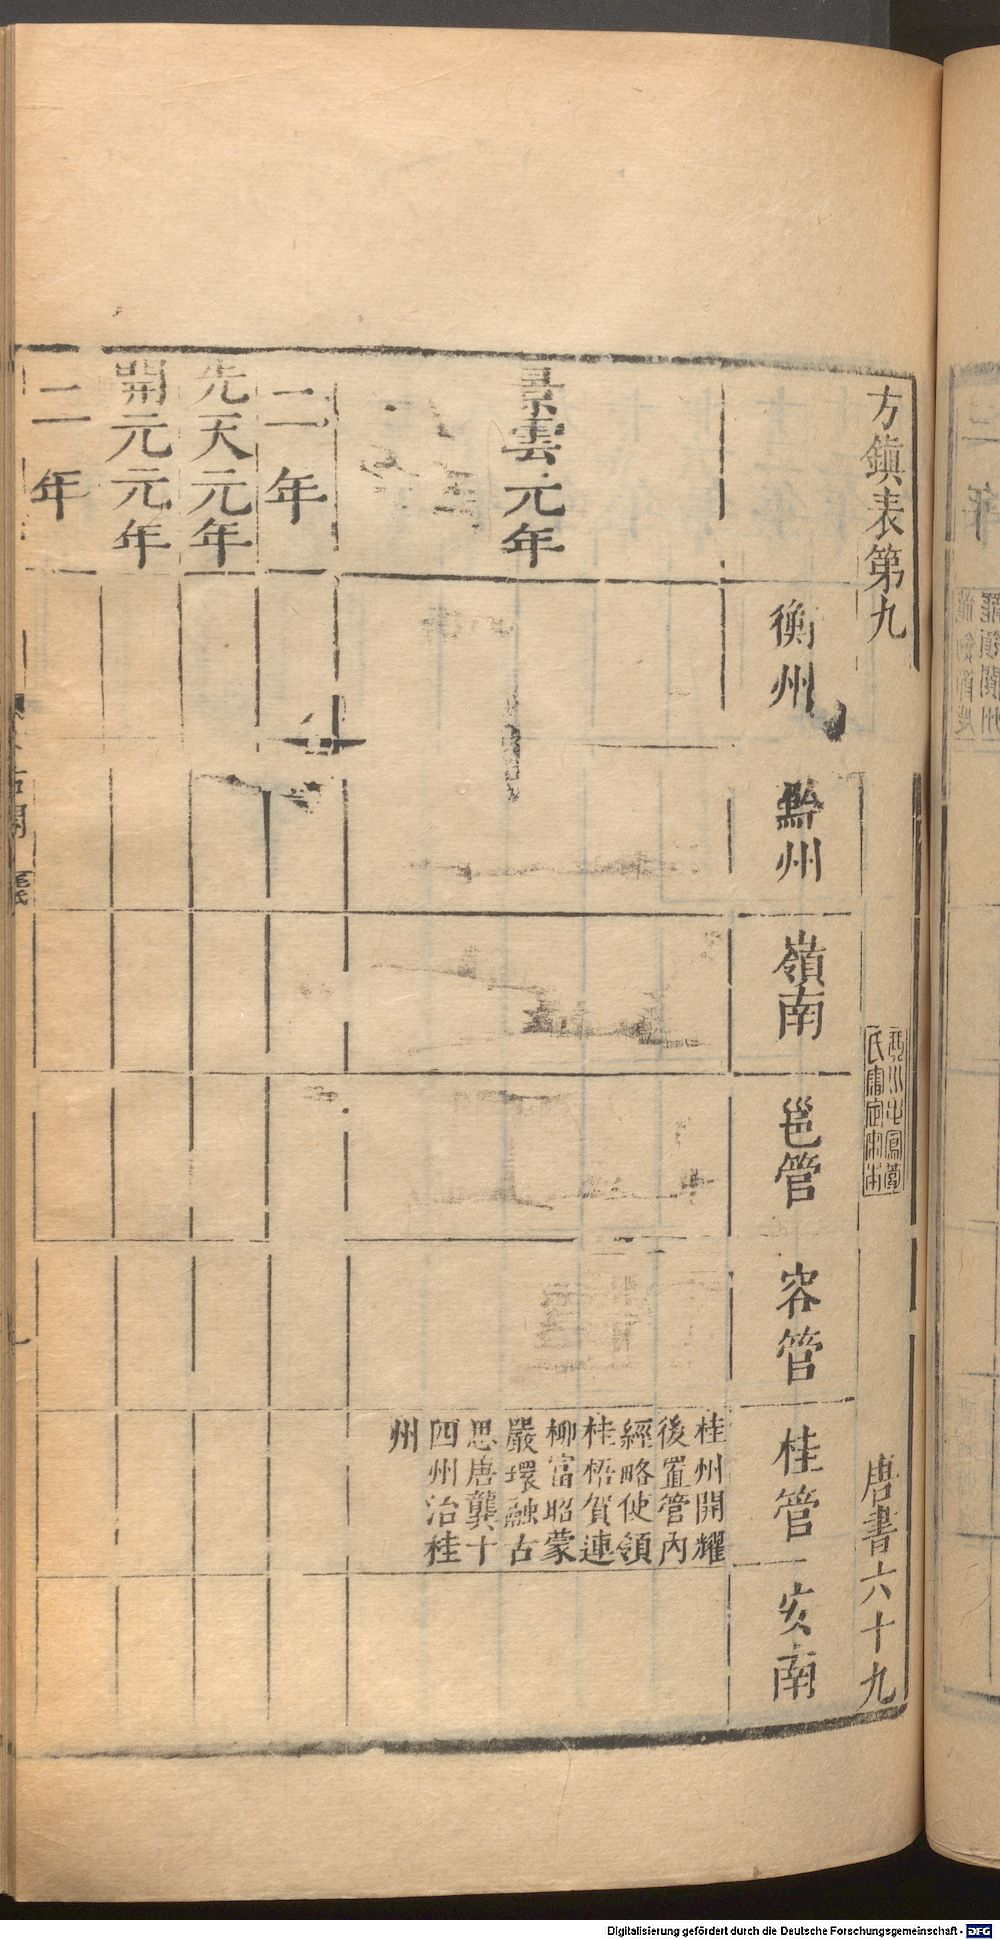 方鎮表第九
唐書六十九
衡州
黔州
嶺南
邕管
容管
桂管
安南
景雲元年
桂州開耀
後置管內
經略使領
桂梧賀連
柳富昭蒙
嚴環融古
思唐龔十
四州治桂
州
二年
先天元年
開元元年
二年
Digitalisierung gefördert durch die Deutsche Forschungsgemeinschaft - DFG